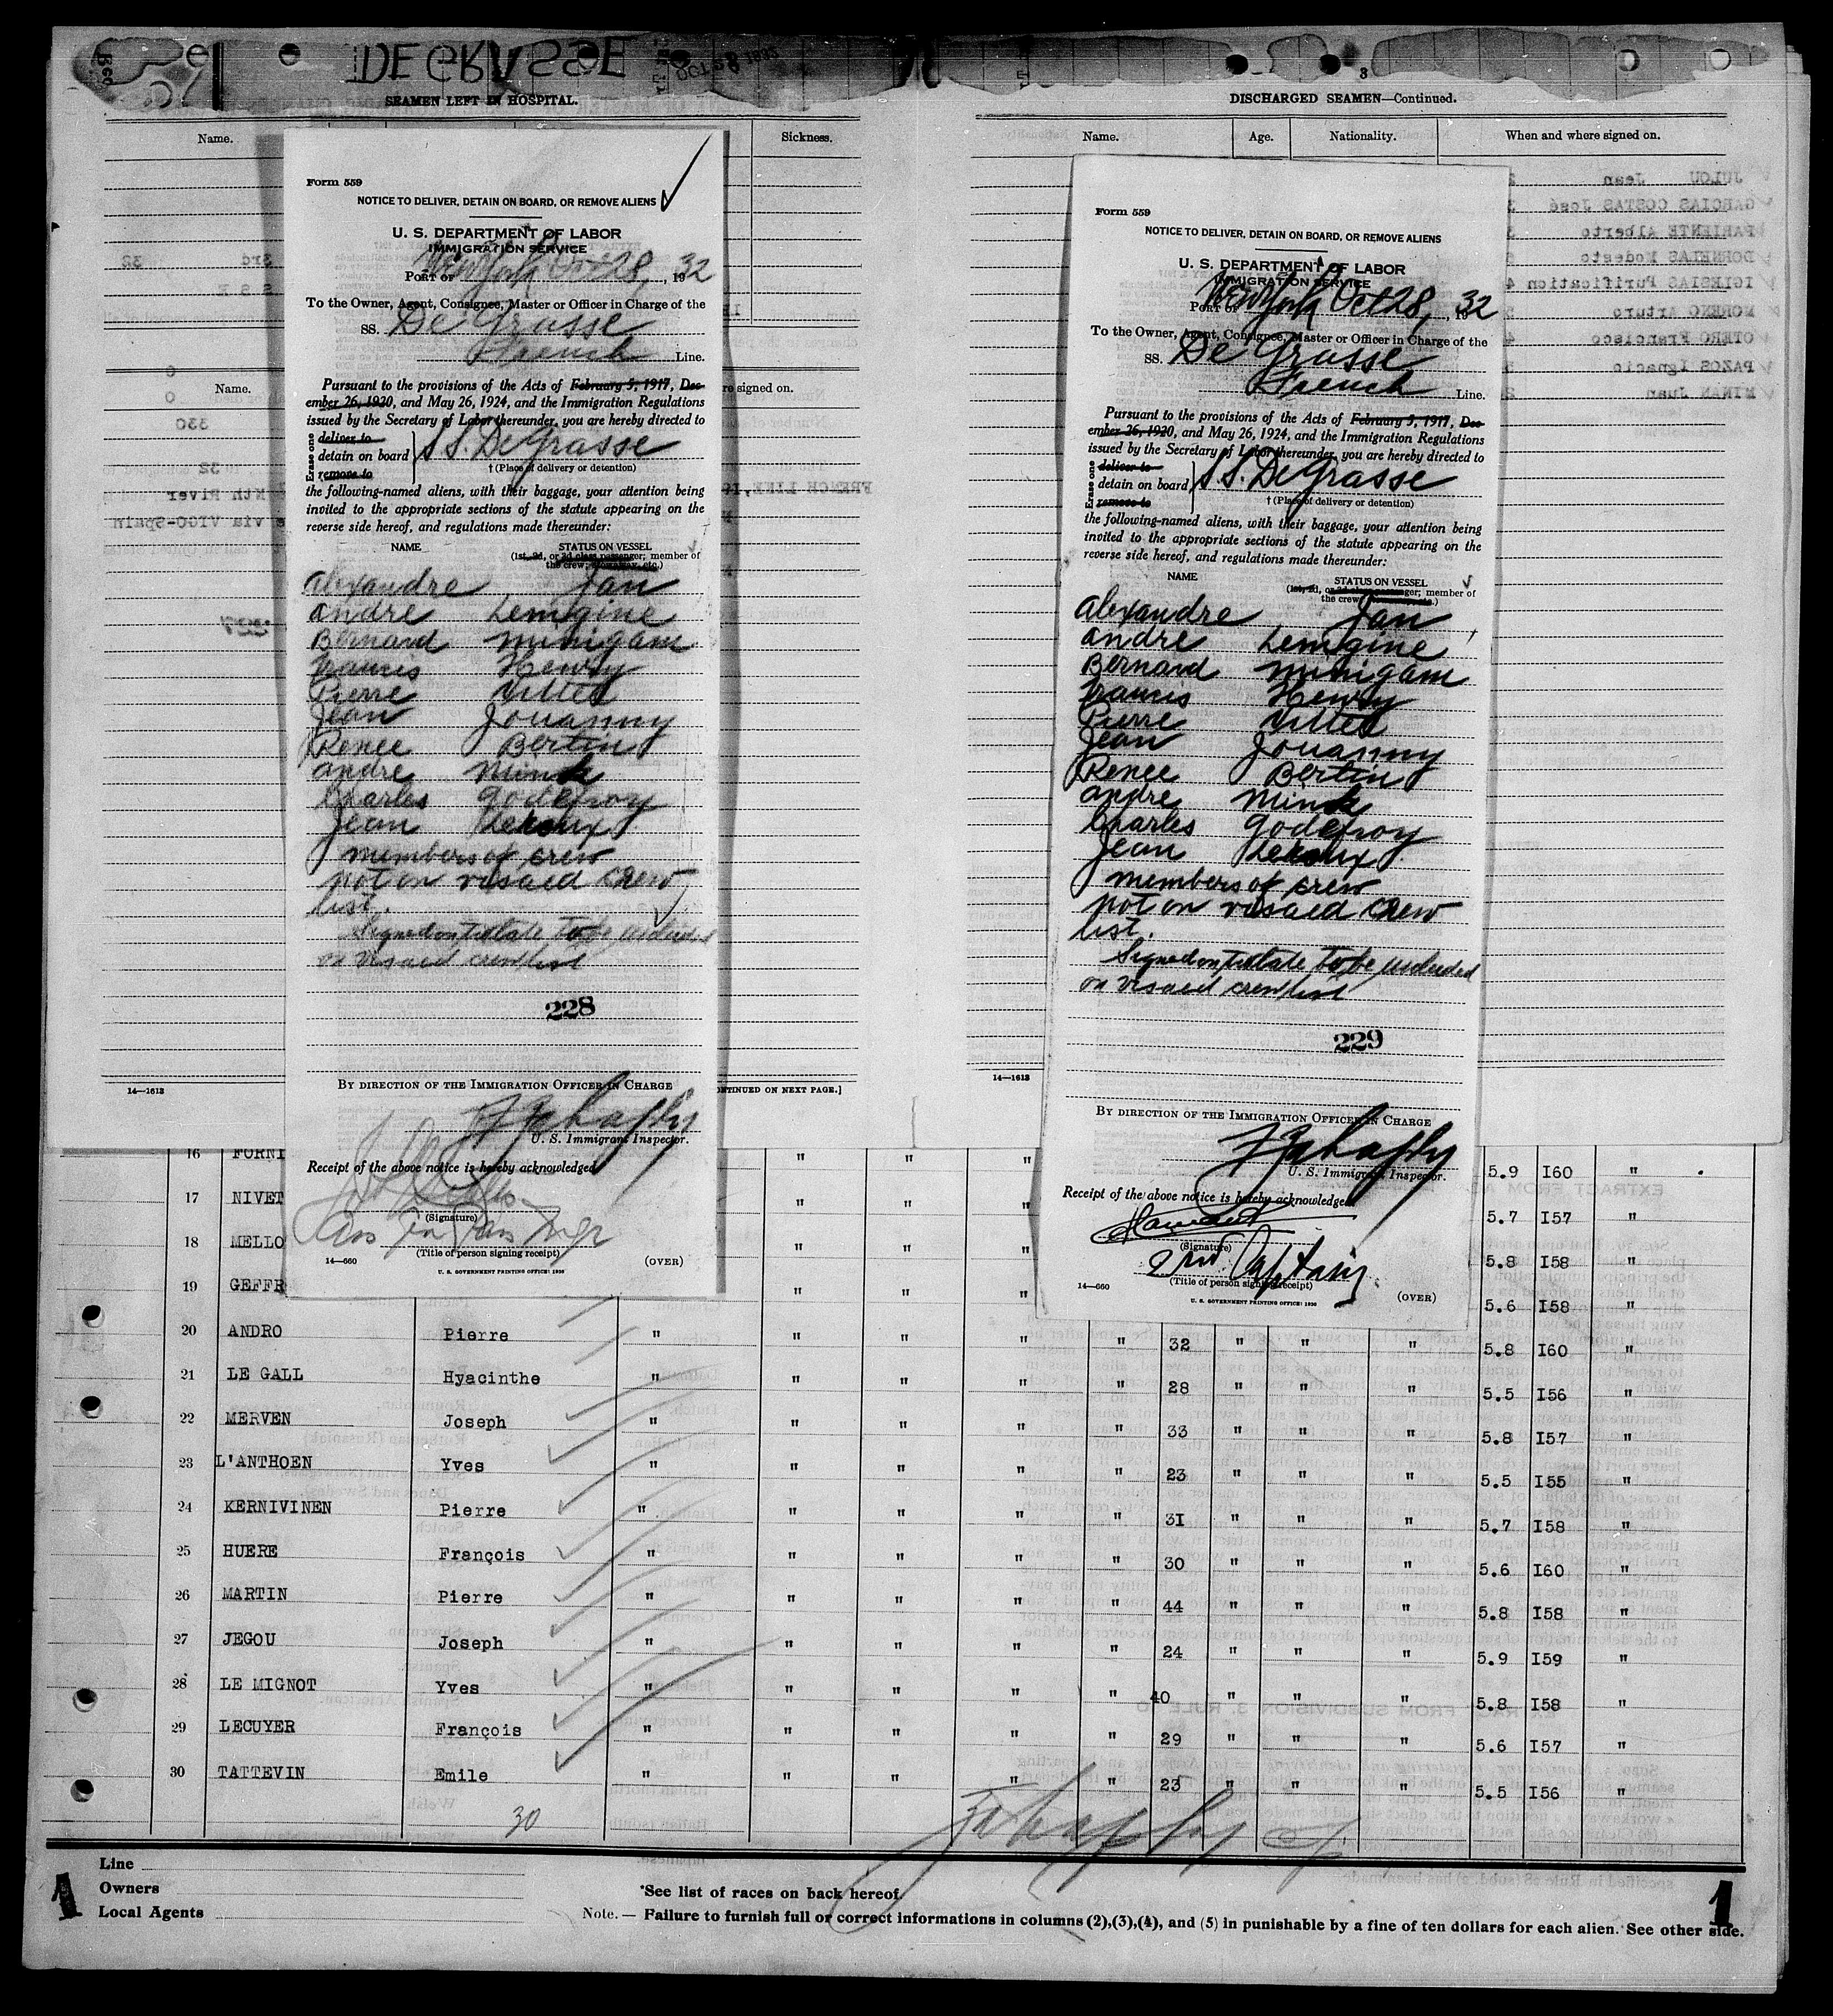 DE GRASSE
OCT 28 1932
SEAMEN LEFT IN HOSPITAL.
Name.
Sickness.
Name.
re signed on.
14—1613
NTINUED ON NEXT PAGE.]
3
DISCHARGED SEAMEN—Continued.
Name. Age. Nationality. When and where signed on.
JULOU Jean
GARCIAS COSTAS José
PARIENTE Alberto
DORNELAS Modesto
IGLESIAS Purification
MORENO Arturo
OTERO Francisco
PAZOS Ignacio
MINAN Juan
14—1613
Form 559
NOTICE TO DELIVER, DETAIN ON BOARD, OR REMOVE ALIENS
U. S. DEPARTMENT OF LABOR
IMMIGRATION SERVICE
Port of New York Oct 28, 1932
To the Owner, Agent, Consignee, Master or Officer in Charge of the
SS. De Grasse
French Line.
Pursuant to the provisions of the Acts of February 5, 1917, Dec-
ember 26, 1920, and May 26, 1924, and the Immigration Regulations
issued by the Secretary of Labor thereunder, you are hereby directed to
Erase one
deliver to
detain on board S.S. De Grasse
remove to
† (Place of delivery or detention)
the following-named aliens, with their baggage, your attention being
invited to the appropriate sections of the statute appearing on the
reverse side hereof, and regulations made thereunder:
NAME STATUS ON VESSEL
(1st, 2d, or 3d class passenger; member of
the crew; stowaway, etc.)
Alexandre Jan
Andre Lemigine
Bernard Minigam
Francis Henry
Pierre Vittel
Jean Jouanny
Renee Bertin
Andre Mink
Charles Godefroy
Jean Leroux
members of crew
not on visaed crew
list.
Signed on too late to be included
on visaed crew list
228
By direction of the Immigration Officer in Charge
U. S. Immigrant Inspector.
Receipt of the above notice is hereby acknowledged
(Signature)
Ass Gen Pass Mgr
(Title of person signing receipt)
14—660
(OVER)
U. S. GOVERNMENT PRINTING OFFICE: 1930
Form 559
NOTICE TO DELIVER, DETAIN ON BOARD, OR REMOVE ALIENS
U. S. DEPARTMENT OF LABOR
IMMIGRATION SERVICE
Port of New York Oct 28, 1932
To the Owner, Agent, Consignee, Master or Officer in Charge of the
SS. De Grasse
French Line.
Pursuant to the provisions of the Acts of February 5, 1917, Dec-
ember 26, 1920, and May 26, 1924, and the Immigration Regulations
issued by the Secretary of Labor thereunder, you are hereby directed to
Erase one
deliver to
detain on board S.S. De Grasse
remove to
† (Place of delivery or detention)
the following-named aliens, with their baggage, your attention being
invited to the appropriate sections of the statute appearing on the
reverse side hereof, and regulations made thereunder:
NAME STATUS ON VESSEL
(1st, 2d, or 3d class passenger; member of
the crew; stowaway, etc.)
Alexandre Jan
Andre Lemigine
Bernard Minigam
Francis Henry
Pierre Vittel
Jean Jouanny
Renee Bertin
Andre Mink
Charles Godefroy
Jean Leroux
members of crew
not on visaed crew
list.
Signed on too late to be included
on visaed crew list
229
By direction of the Immigration Officer in Charge
U. S. Immigrant Inspector.
Receipt of the above notice is hereby acknowledged
(Signature)
2nd Captain
(Title of person signing receipt)
14—660
(OVER)
U. S. GOVERNMENT PRINTING OFFICE: 1930
16 FORNI " " " 5.9 I60 "
17 NIVET " " " 5.7 I57 "
18 MELLO " " " 5.8 I58 "
19 GEFFR " " " 5.6 I58 "
20 ANDRO Pierre " " " " " 32 " " " 5.8 I60 "
21 LE GALL Hyacinthe " " " " " 28 " " " 5.5 I56 "
22 MERVEN Joseph " " " " " 33 " " " 5.8 I57 "
23 L'ANTHOEN Yves " " " " " 23 " " " 5.5 I55 "
24 KERNIVINEN Pierre " " " " " 31 " " " 5.7 I58 "
25 HUERE François " " " " " 30 " " " 5.6 I60 "
26 MARTIN Pierre " " " " " 44 " " " 5.8 I58 "
27 JEGOU Joseph " " " " " 24 " " " 5.9 I59 "
28 LE MIGNOT Yves " " " " " 40 " " " 5.8 I58 "
29 LECUYER François " " " " " 29 " " " 5.6 I57 "
30 TATTEVIN Emile " " " " " 23 " " " 5.5 I56 "
30
Line
Owners
Local Agents
1
*See list of races on back hereof.
Note.— Failure to furnish full or correct informations in columns (2),(3),(4), and (5) in punishable by a fine of ten dollars for each alien. See other side.
1